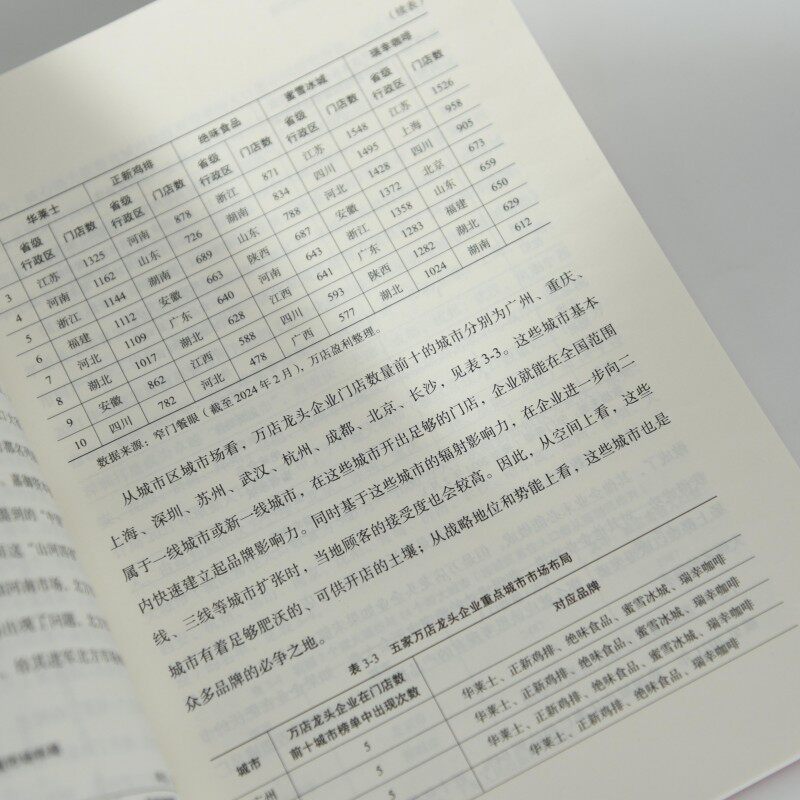 （续表）
华莱士 正新鸡排 绝味食品 蜜雪冰城 瑞幸咖啡
省级行政区 门店数 省级行政区 门店数 省级行政区 门店数 省级行政区 门店数 省级行政区 门店数
3 江苏 1325 河南 878 浙江 871 江苏 1548 江苏 1526
4 河南 1162 山东 726 湖南 834 四川 1495 上海 958
5 浙江 1144 湖南 689 山东 788 河北 1428 四川 905
6 福建 1112 安徽 663 陕西 687 安徽 1372 北京 673
7 河北 1109 广东 640 河南 643 浙江 1358 山东 659
8 湖北 1017 湖北 628 江西 641 广东 1283 福建 650
9 安徽 862 江西 588 四川 593 陕西 1282 湖北 629
10 四川 782 河北 478 广西 577 湖北 1024 湖南 612
数据来源：窄门餐眼（截至2024年2月），万店盈利整理。
从城市区域市场看，万店龙头企业门店数量前十的城市分别为广州、重庆、
上海、深圳、苏州、武汉、杭州、成都、北京、长沙，见表3-3。这些城市基本
属于一线城市或新一线城市，在这些城市开出足够的门店，企业就能在全国范围
内快速建立起品牌影响力。同时基于这些城市的辐射影响力，在企业进一步向二
线、三线等城市扩张时，当地顾客的接受度也会较高。因此，从空间上看，这些
城市有着足够肥沃的、可供开店的土壤；从战略地位和势能上看，这些城市也是
众多品牌的必争之地。
表3-3 五家万店龙头企业重点城市市场布局
城市 万店龙头企业在门店数前十城市榜单中出现次数 对应品牌
广州 5 华莱士、正新鸡排、绝味食品、蜜雪冰城、瑞幸咖啡
5 华莱士、正新鸡排、绝味食品、蜜雪冰城、瑞幸咖啡
华莱士、正新鸡排、绝味食品、蜜雪冰城、瑞幸咖啡
华莱士、正新鸡排、绝味食品、瑞幸咖啡